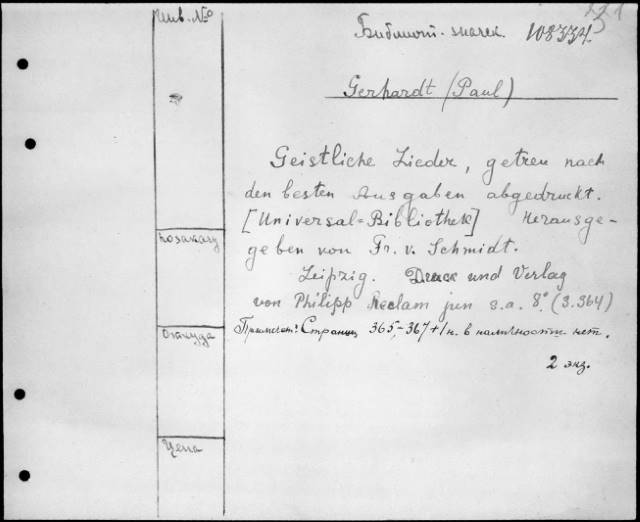 Инв. №
Библиот. значек 108334
Gerhardt (Paul)
Geistliche Lieder, getreu nach
den besten Ausgaben abgedruckt.
[Universal=Bibliothek] Herausge-
geben von Fr. v. Schmidt.
Leipzig. Druck und Verlag
von Philipp Reclam jun s.a. 8°. (3.364)
Примечат: Страниц 365,-367+1н. в наличности нет.
2 экз.
Откуда
Цена